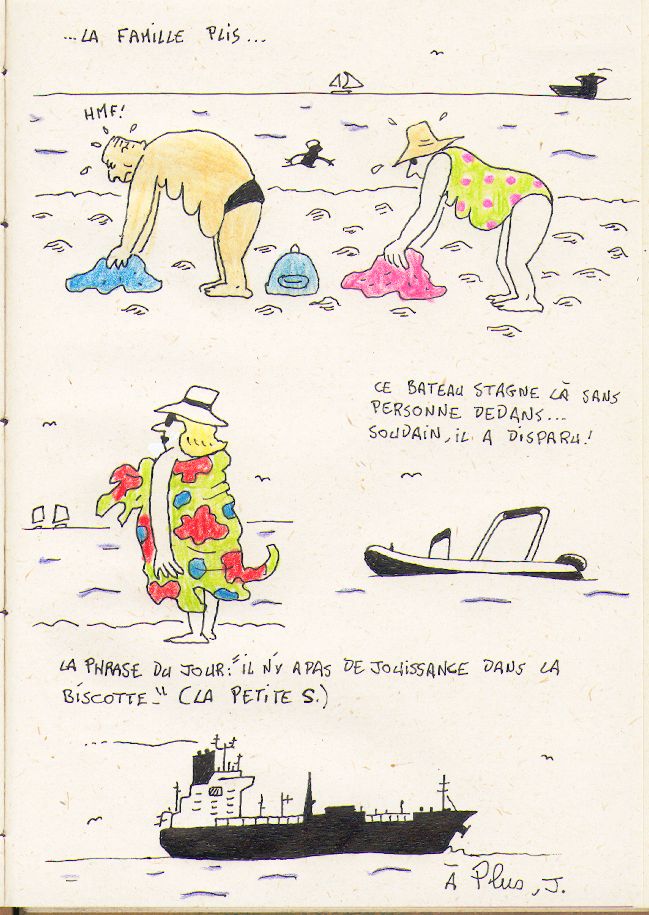 ...LA FAMILLE PLIS...
HMF!
CE BATEAU STAGNE LÀ SANS
PERSONNE DEDANS...
SOUDAIN, IL A DISPARU!
LA PHRASE DU JOUR: "IL N'Y A PAS DE JOUISSANCE DANS LA
BISCOTTE" (LA PETITE S.)
À Plus, J.